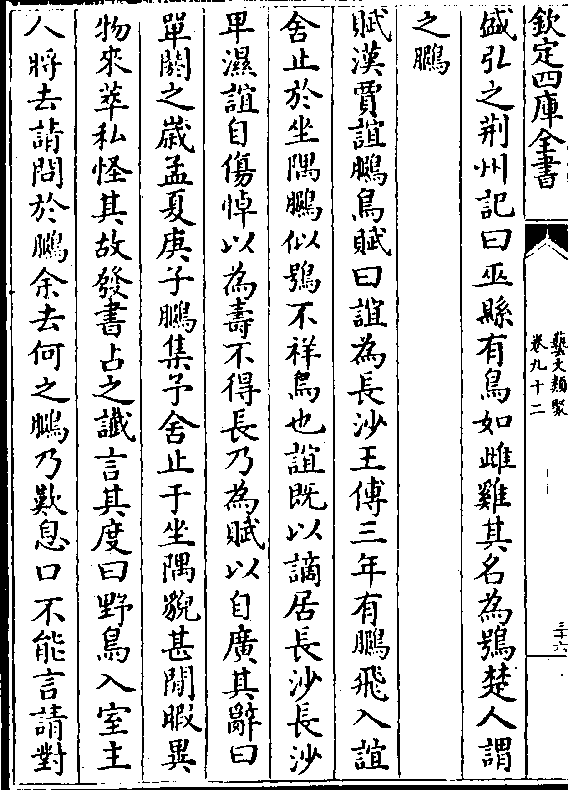 欽定四庫全書
藝文類聚
卷九十二
三十六
盛弘之荆州記曰巫縣有鳥如雌雞其名為鴞楚人謂
之鵩
賦漢賈誼鵩鳥賦曰誼為長沙王傅三年有鵩飛入誼
舍止於坐隅鵩似鴞不祥鳥也誼既以謫居長沙長沙
卑濕誼自傷悼以為壽不得長乃為賦以自廣其辭曰
單閼之歲孟夏庚子鵩集予舍止于坐隅貌甚閒暇異
物來萃私怪其故發書占之讖言其度曰野鳥入室主
人將去請問於鵩余去何之鵩乃歎息口不能言請對